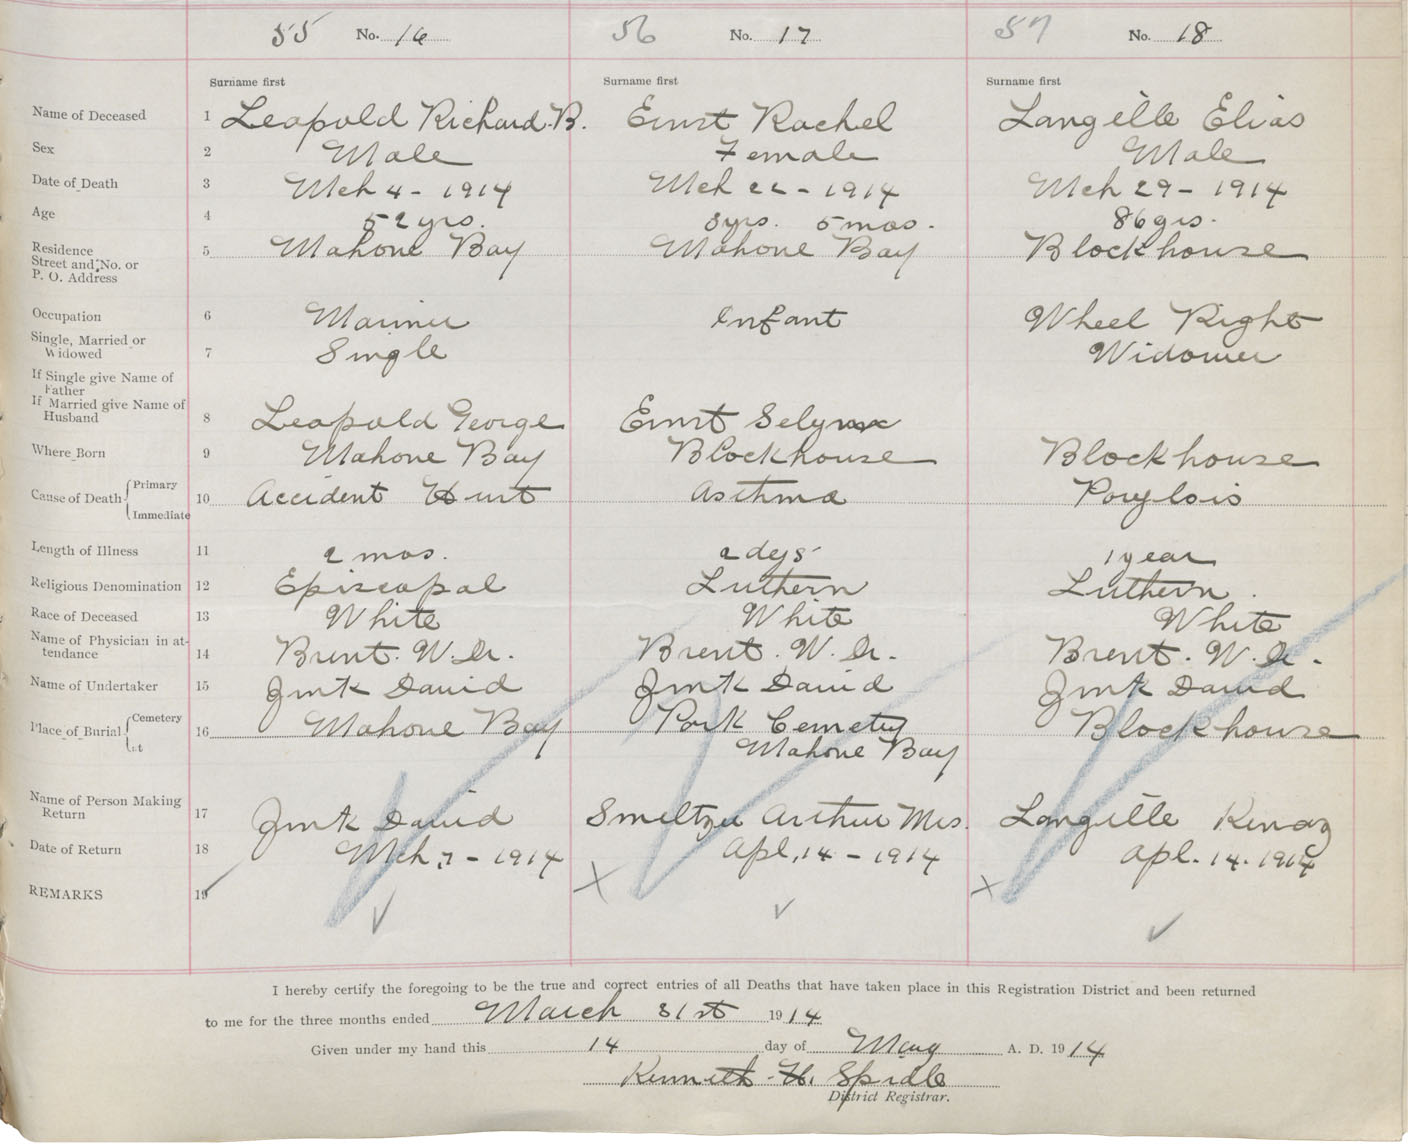 55 No. 16 56 No. 17 57 No. 18
Surname first Surname first Surname first
Name of Deceased 1 Leopold Richard. B. Ernst Rachel Langille Elias
Sex 2 Male Female Male
Date of Death 3 Mch 4 - 1914 Mch 22 - 1914 Mch 29 - 1914
Age 4 52 yrs. 3 yrs. 5 mos. 86 yrs.
Residence Street and No. or P. O. Address 5 Mahone Bay Mahone Bay Blockhouse
Occupation 6 Mariner Infant Wheel Right
Single, Married or Widowed 7 Single Widower
If Single give Name of Father
If Married give Name of Husband 8 Leopold George Ernst
Where Born 9 Mahone Bay Blockhouse Blockhouse
Cause of Death { Primary Immediate 10 Accident Hurt Asthma
Length of Illness 11 2 mos. 2 dys 1 year
Religious Denomination 12 Episcopal Luthern Luthern.
Race of Deceased 13 White White White
Name of Physician in attendance 14 Brent. W. Dr. Brent. W. Dr. Brent. W. Dr.
Name of Undertaker 15 Zink David Zink David Zink David
Place of Burial { Cemetery Lot 16 Mahone Bay Park Cemetry Blockhouse
Mahone Bay
Name of Person Making Return 17 Zink David Smeltzer Arthur Mrs. Langille
Date of Return 18 Mch, 7 - 1914 Apl, 14 - 1914 Apl. 14. 1914
REMARKS 19
I hereby certify the foregoing to be the true and correct entries of all Deaths that have taken place in this Registration District and been returned
to me for the three months ended March 31st 1914
Given under my hand this 14 day of May A. D. 1914
Kenneth H. Spidle
District Registrar.